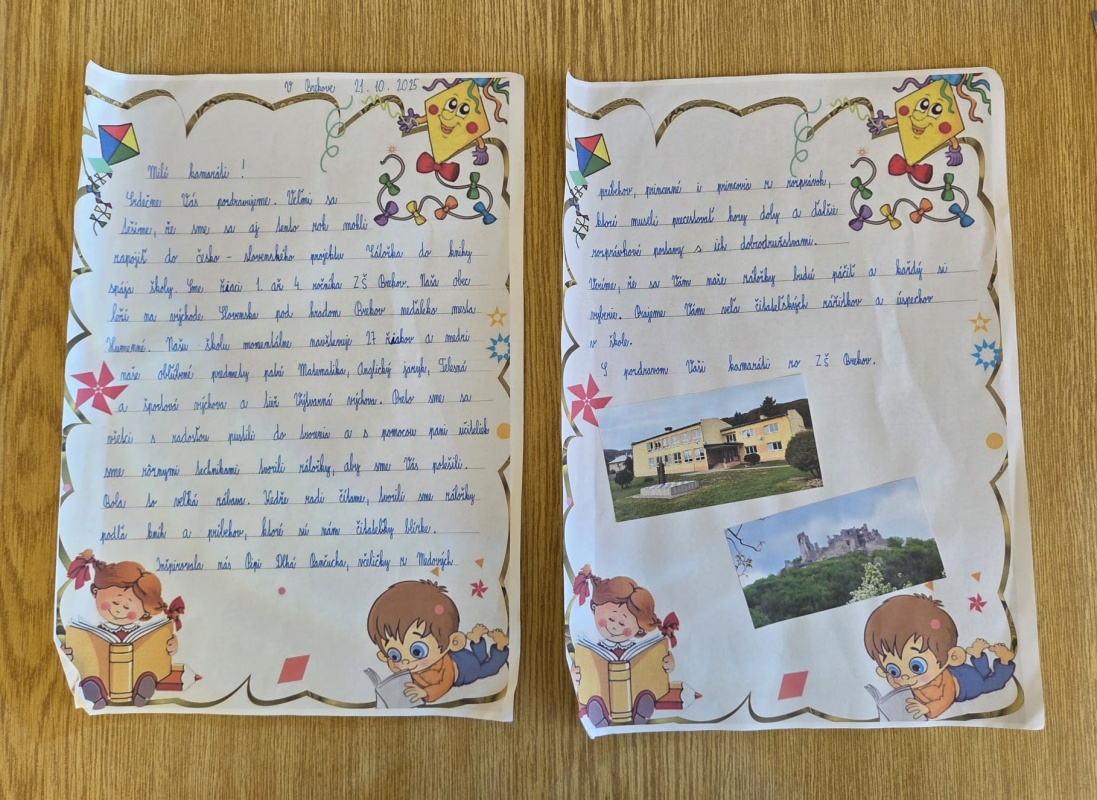 V Brekove 21.10.2025
Milí kamaráti!
Srdečne Vás pozdravujeme. Veľmi sa
tešíme, že sme sa aj tento rok mohli
zapojiť do česko - slovenského projektu Záložka do knihy
spája školy. Sme žiaci 1. až 4. ročníka ZŠ Brekov. Naša obec
leží na východe Slovenska pod hradom Brekov neďaleko mesta
Humenné. Našu školu momentálne navštevuje 27 žiakov a medzi
naše obľúbené predmety patrí Matematika, Anglický jazyk, Telesná
a športová výchova a tiež Výtvarná výchova. Preto sme sa
všetci s radosťou pustili do tvorenia a s pomocou pani učiteliek
sme rôznymi technikami tvorili záložky, aby sme Vás potešili.
Bola to veľká zábava. Keďže radi čítame, tvorili sme záložky
podľa kníh a príbehov, ktoré sú nám čitateľsky blízke.
Inšpirovala nás Pipi Dlhá Pančucha, včeličky z Medových
príbehov, princezné i princovia z rozprávok,
ktorí museli precestovať hory doly a ďalšie
rozprávkové postavy s ich dobrodružstvami.
Veríme, že sa Vám naše záložky budú páčiť a každý si
vyberie. Prajeme Vám veľa čitateľských zážitkov a úspechov
v škole.
S pozdravom Vaši kamaráti zo ZŠ Brekov.